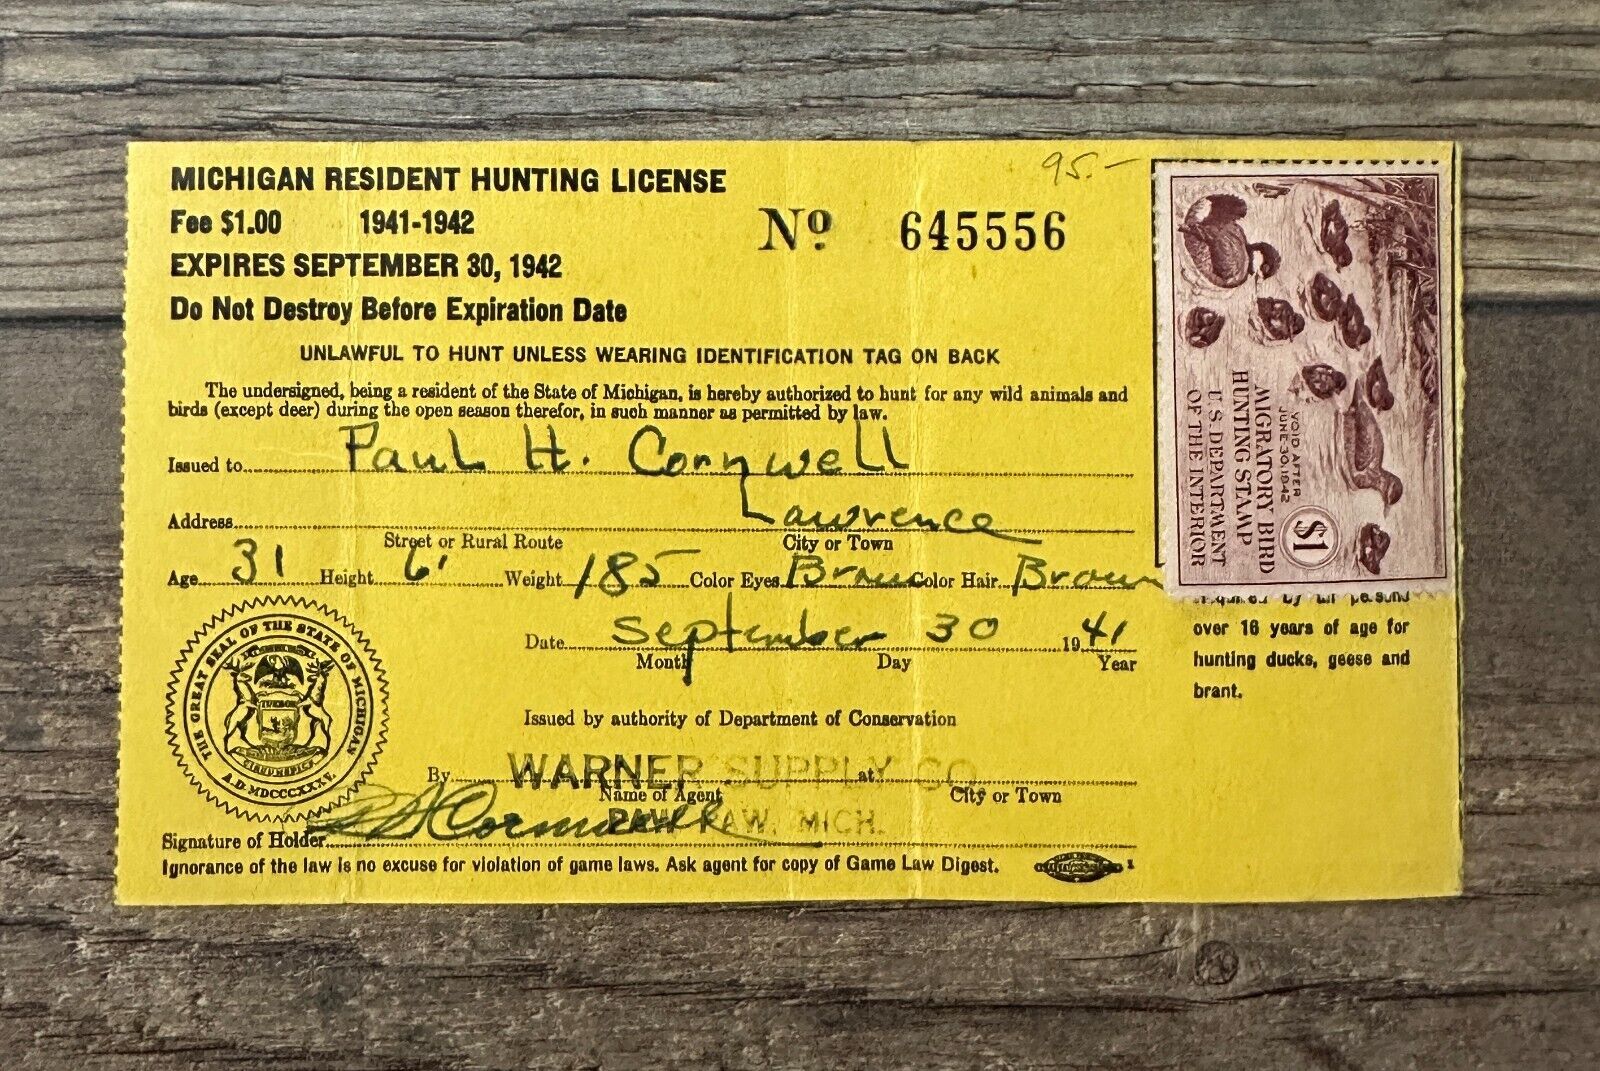 MICHIGAN RESIDENT HUNTING LICENSE
95.-
Fee $1.00 1941-1942
No. 645556
EXPIRES SEPTEMBER 30, 1942
Do Not Destroy Before Expiration Date
UNLAWFUL TO HUNT UNLESS WEARING IDENTIFICATION TAG ON BACK
The undersigned, being a resident of the State of Michigan, is hereby authorized to hunt for any wild animals and
birds (except deer) during the open season therefor, in such manner as permitted by law.
Issued to Paul H. Cornwell
Address Lawrence
Street or Rural Route City or Town
Age 31 Height 6' Weight 185 Color Eyes Brown Color Hair Brown
Date September 30 1941
Month Day Year
Issued by authority of Department of Conservation
By WARNER SUPPLY CO. at
Name of Agent City or Town
PAW PAW, MICH.
Signature of Holder P H Cornwell
Ignorance of the law is no excuse for violation of game laws. Ask agent for copy of Game Law Digest.
1
THE GREAT SEAL OF THE STATE OF MICHIGAN
TUEBOR
CIRCUMSPICE
A.D. MDCCCXXXV.
VOID AFTER
JUNE 30, 1942
$1
MIGRATORY BIRD
HUNTING STAMP
U.S. DEPARTMENT
OF THE INTERIOR
required by all persons
over 16 years of age for
hunting ducks, geese and
brant.